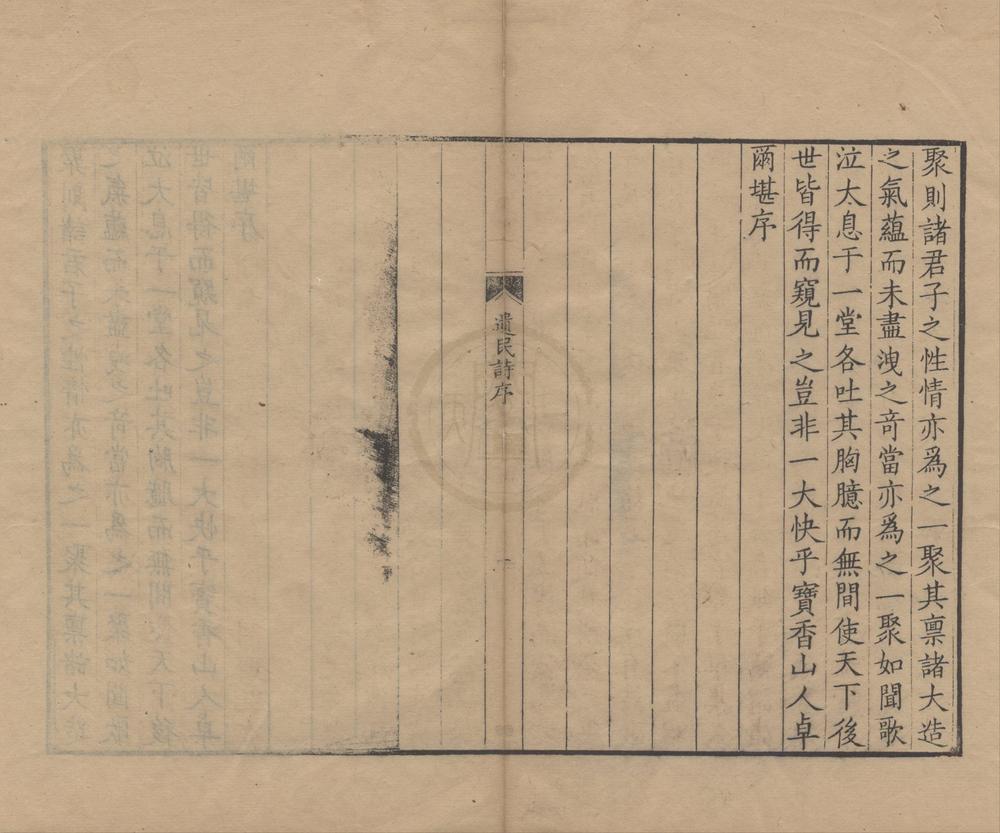 聚則諸君子之性情亦爲之一聚其禀諸大造
之氣蘊而未盡洩之奇當亦爲之一聚如聞歌
泣太息于一堂各吐其胸臆而無間使天下後
世皆得而窺見之豈非一大快乎寶香山人卓
爾堪序
遺民詩序
一